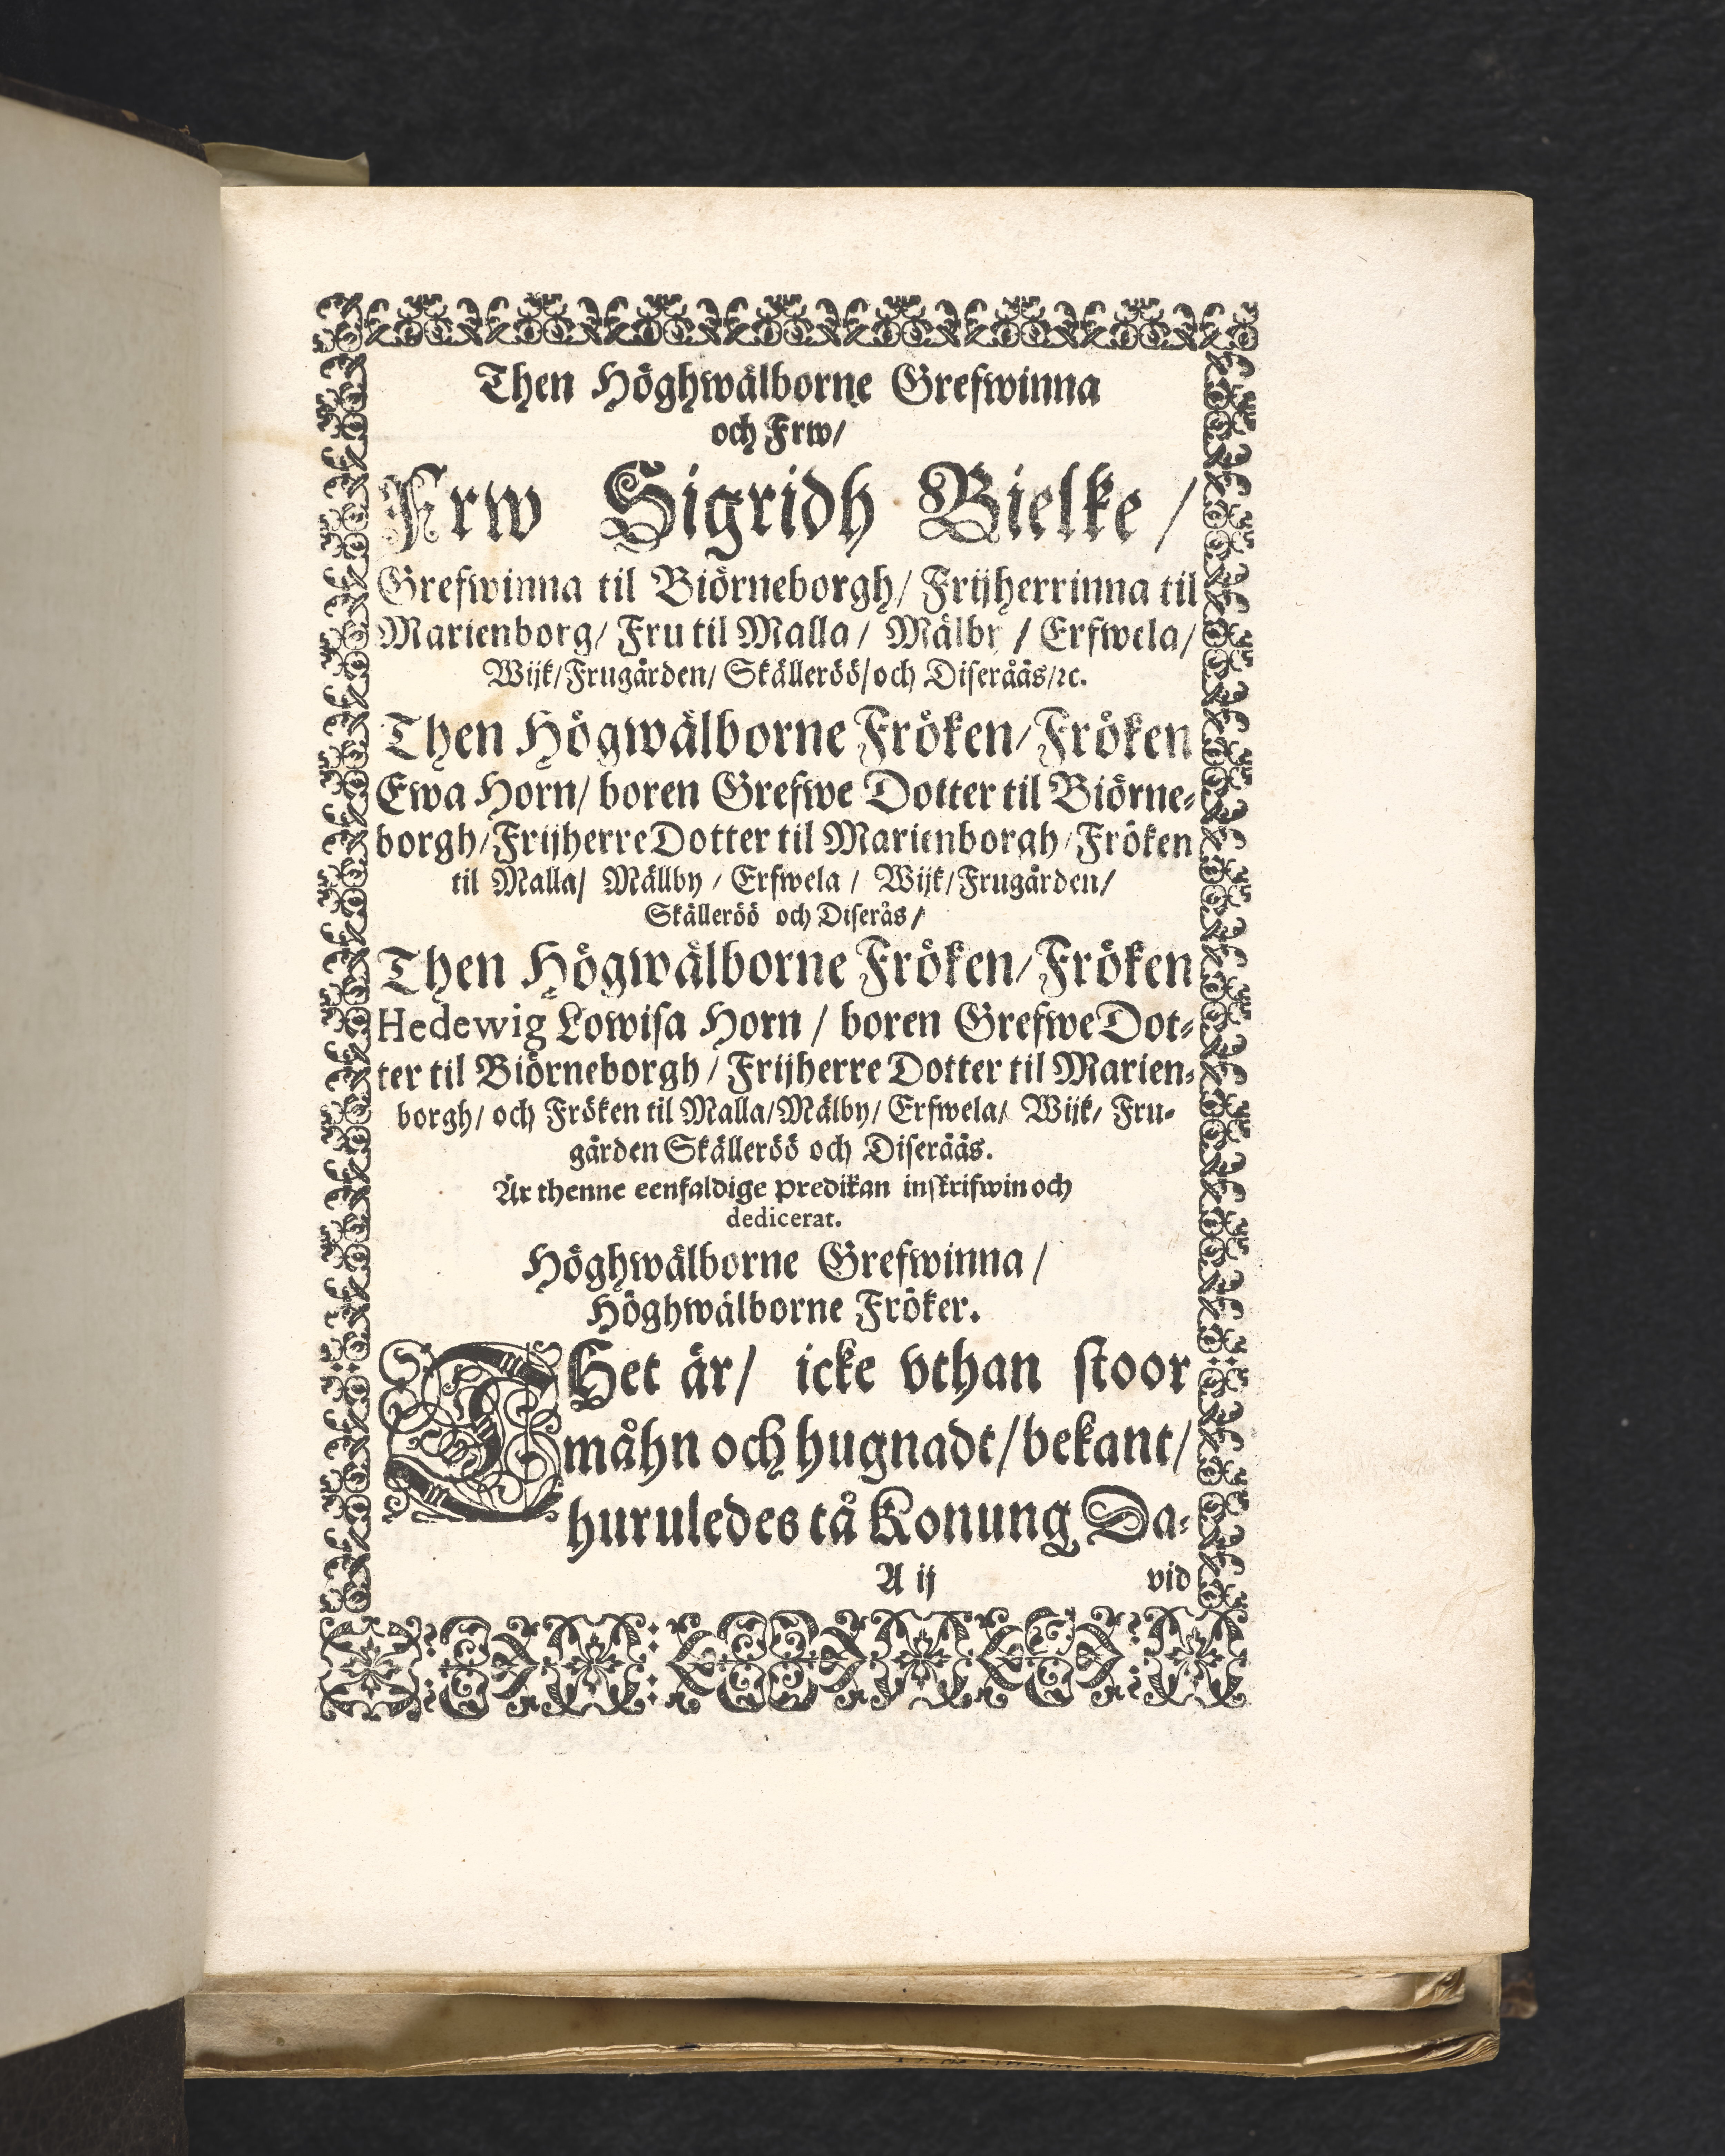 Then Höghwälborne Grefwinna
och Frw/
Frw Sigridh Bielke/
Grefwinna til Biörneborgh/ Frijherrinna til
Marienborg/ Fru til Malla/ Mälby/ Erfwela/
Wijk/Frugården/ Skälleröö/och Diseråås/ꝛc.
Then Högwälborne Fröken/Fröken
Ewa Horn/ boren Grefwe Dotter til Biörne-
borgh/Frijherre Dotter til Marienborgh/Fröken
til Malla/ Mällby/ Erfwela/ Wijk/Frugården/
Skälleröö och Diserås/
Then Högwälborne Fröken/Fröken
Hedewig Lowisa Horn/ boren Grefwe Dot-
ter til Biörneborgh/ Frijherre Dotter til Marien-
borgh/ och Fröken til Malla/Mälby/ Erfwela/ Wijk/ Fru-
gården Skälleröö och Diseråås.
Är thenne eenfaldige predikan inskrifwin och
dedicerat.
Höghwälborne Grefwinna/
Höghwälborne Fröker.
DHet är/ icke vthan stoor
måhn och hugnadt/bekant/
huruledes tå Konung Da-
A ij vid